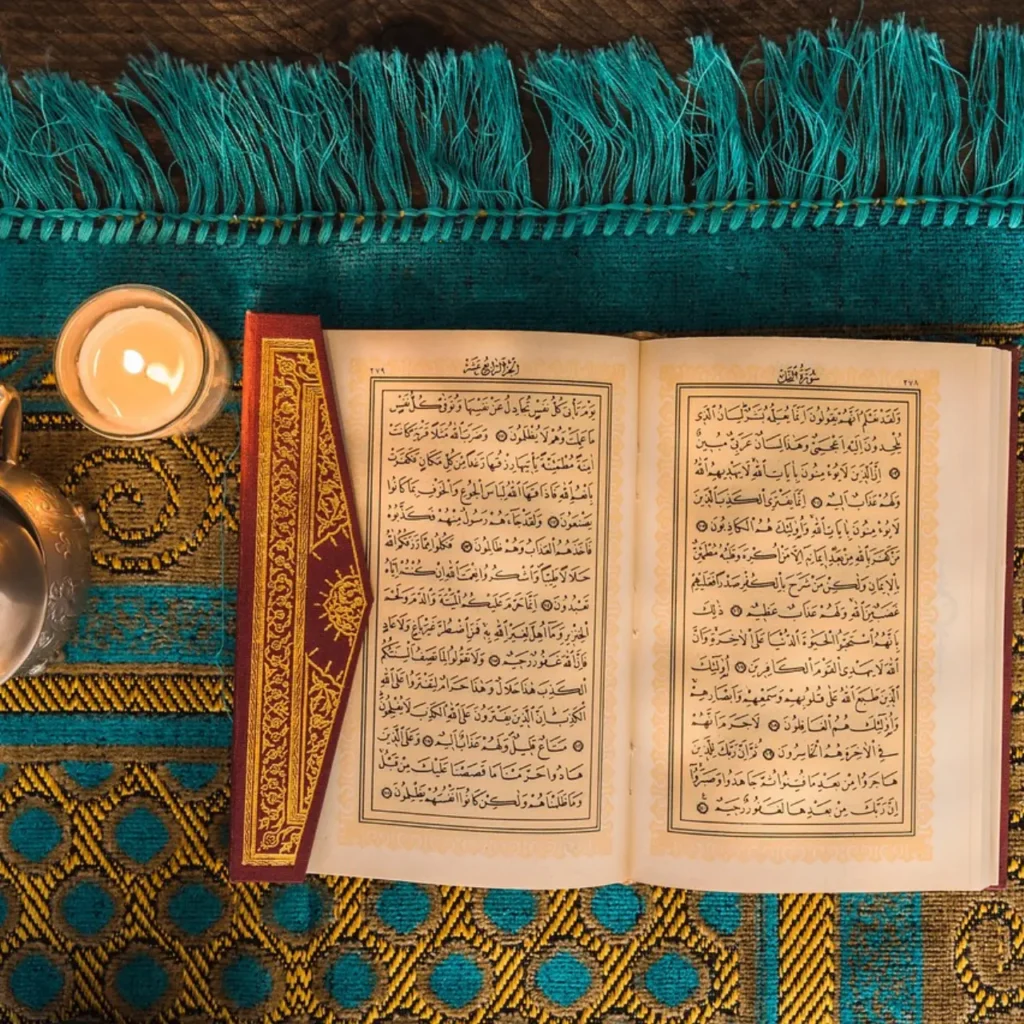 سُورَةُ النَّحْلِ ٢٧٨
وَلَقَدْ نَعْلَمُ أَنَّهُمْ يَقُولُونَ إِنَّمَا يُعَلِّمُهُ بَشَرٌ لِسَانُ الَّذِي
يُلْحِدُونَ إِلَيْهِ أَعْجَمِيٌّ وَهَٰذَا لِسَانٌ عَرَبِيٌّ مُبِينٌ
إِنَّ الَّذِينَ لَا يُؤْمِنُونَ بِآيَاتِ اللَّهِ لَا يَهْدِيهِمُ اللَّهُ
وَلَهُمْ عَذَابٌ أَلِيمٌ إِنَّمَا يَفْتَرِي الْكَذِبَ الَّذِينَ
لَا يُؤْمِنُونَ بِآيَاتِ اللَّهِ وَأُولَٰئِكَ هُمُ الْكَاذِبُونَ
مَنْ كَفَرَ بِاللَّهِ مِنْ بَعْدِ إِيمَانِهِ إِلَّا مَنْ أُكْرِهَ وَقَلْبُهُ مُطْمَئِنٌّ
بِالْإِيمَانِ وَلَٰكِنْ مَنْ شَرَحَ بِالْكُفْرِ صَدْرًا فَعَلَيْهِمْ
غَضَبٌ مِنَ اللَّهِ وَلَهُمْ عَذَابٌ عَظِيمٌ ذَٰلِكَ
بِأَنَّهُمُ اسْتَحَبُّوا الْحَيٰوةَ الدُّنْيَا عَلَى الْآخِرَةِ وَأَنَّ
اللَّهَ لَا يَهْدِي الْقَوْمَ الْكَافِرِينَ أُولَٰئِكَ
الَّذِينَ طَبَعَ اللَّهُ عَلَى قُلُوبِهِمْ وَسَمْعِهِمْ وَأَبْصَارِهِمْ
وَأُولَٰئِكَ هُمُ الْغَافِلُونَ لَا جَرَمَ أَنَّهُمْ
فِي الْآخِرَةِ هُمُ الْخَاسِرُونَ ثُمَّ إِنَّ رَبَّكَ لِلَّذِينَ
هَاجَرُوا مِنْ بَعْدِ مَا فُتِنُوا ثُمَّ جَاهَدُوا وَصَبَرُوا
إِنَّ رَبَّكَ مِنْ بَعْدِهَا لَغَفُورٌ رَحِيمٌ
الْجُزْءُ الرَّابِعُ عَشَرَ ٢٧٩
يَوْمَ تَأْتِي كُلُّ نَفْسٍ تُجَادِلُ عَنْ نَفْسِهَا وَتُوَفَّى كُلُّ نَفْسٍ
مَا عَمِلَتْ وَهُمْ لَا يُظْلَمُونَ وَضَرَبَ اللَّهُ مَثَلًا قَرْيَةً كَانَتْ
آمِنَةً مُطْمَئِنَّةً يَأْتِيهَا رِزْقُهَا رَغَدًا مِنْ كُلِّ مَكَانٍ فَكَفَرَتْ
بِأَنْعُمِ اللَّهِ فَأَذَاقَهَا اللَّهُ لِبَاسَ الْجُوعِ وَالْخَوْفِ بِمَا كَانُوا
يَصْنَعُونَ وَلَقَدْ جَاءَهُمْ رَسُولٌ مِنْهُمْ فَكَذَّبُوهُ
فَأَخَذَهُمُ الْعَذَابُ وَهُمْ ظَالِمُونَ فَكُلُوا مِمَّا رَزَقَكُمُ اللَّهُ
حَلَالًا طَيِّبًا وَاشْكُرُوا نِعْمَتَ اللَّهِ إِنْ كُنْتُمْ إِيَّاهُ
تَعْبُدُونَ إِنَّمَا حَرَّمَ عَلَيْكُمُ الْمَيْتَةَ وَالدَّمَ وَلَحْمَ
الْخِنْزِيرِ وَمَا أُهِلَّ لِغَيْرِ اللَّهِ بِهِ فَمَنِ اضْطُرَّ غَيْرَ بَاغٍ وَلَا عَادٍ
فَإِنَّ اللَّهَ غَفُورٌ رَحِيمٌ وَلَا تَقُولُوا لِمَا تَصِفُ أَلْسِنَتُكُمُ
الْكَذِبَ هَٰذَا حَلَالٌ وَهَٰذَا حَرَامٌ لِتَفْتَرُوا عَلَى اللَّهِ
الْكَذِبَ إِنَّ الَّذِينَ يَفْتَرُونَ عَلَى اللَّهِ الْكَذِبَ لَا يُفْلِحُونَ
مَتَاعٌ قَلِيلٌ وَلَهُمْ عَذَابٌ أَلِيمٌ وَعَلَى الَّذِينَ
هَادُوا حَرَّمْنَا مَا قَصَصْنَا عَلَيْكَ مِنْ قَبْلُ
وَمَا ظَلَمْنَاهُمْ وَلَٰكِنْ كَانُوا أَنْفُسَهُمْ يَظْلِمُونَ